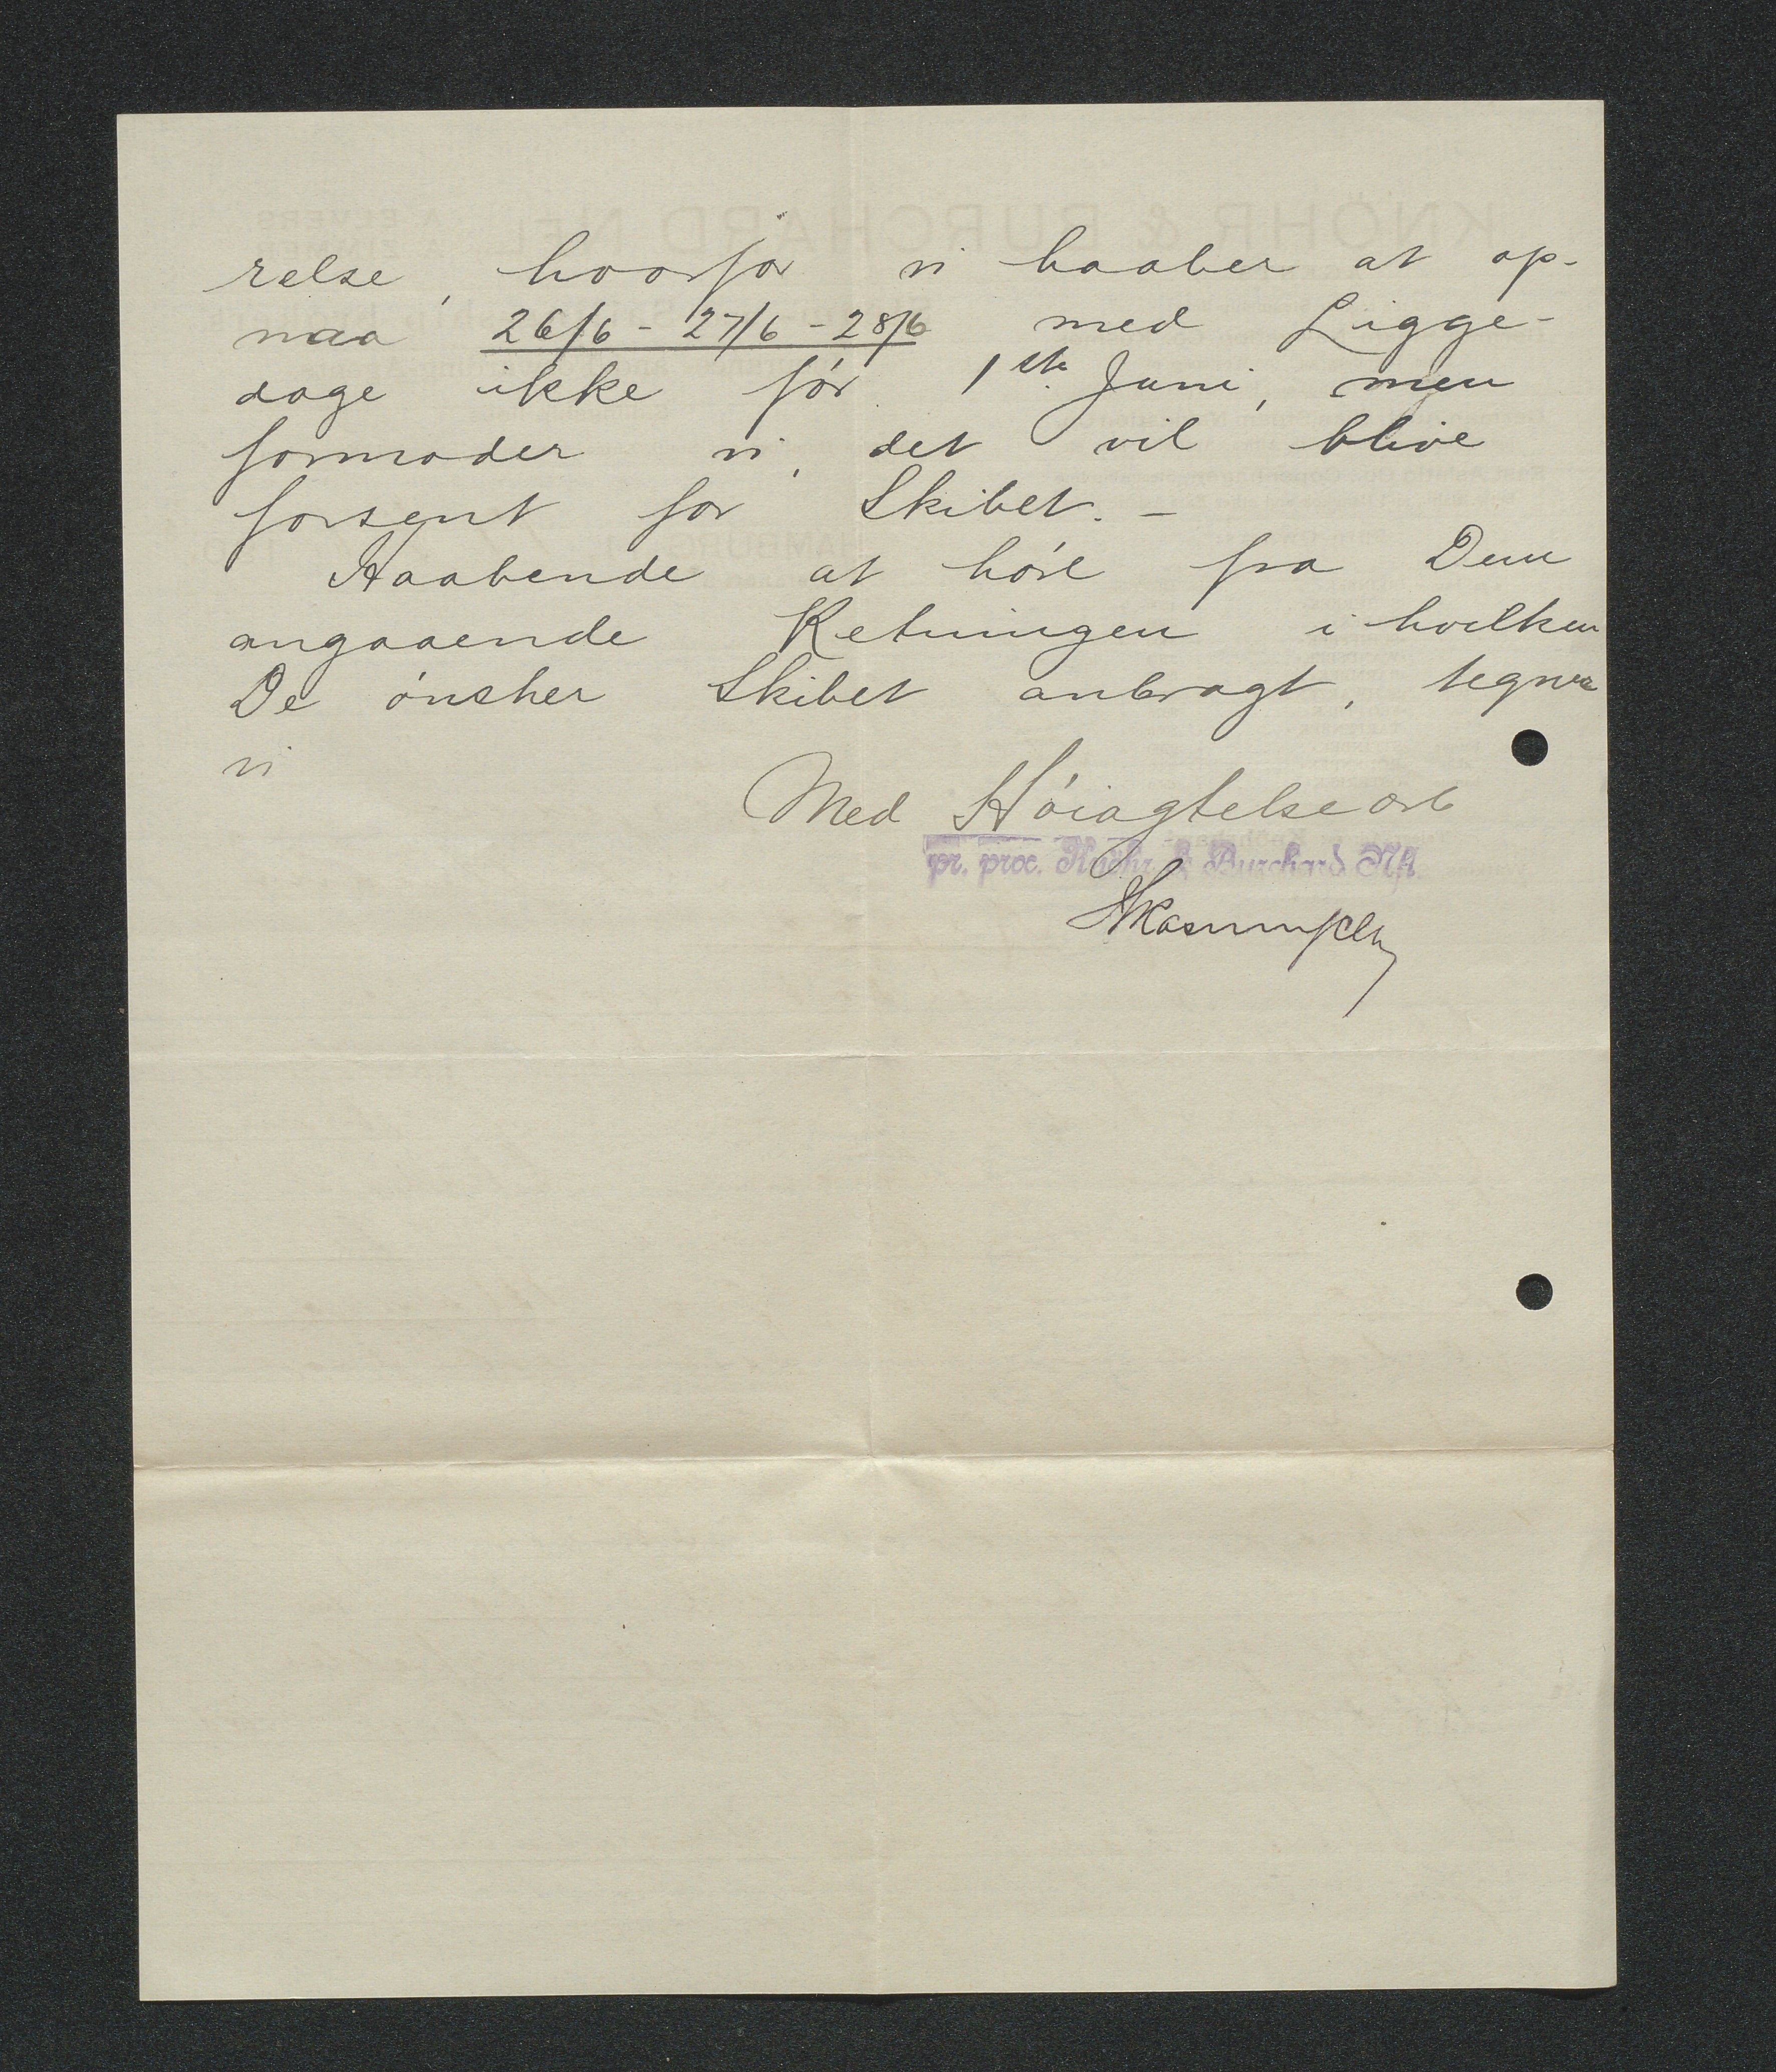 relse, hvorfor vi haaber at op-
naa 26/6 - 27/6 - 28/6 med Ligge-
dage ikke før 1ste Juni, men
formoder vi, det vil blive
forsent for Skibet. -
Haabende at høre fra Dem
angaaende Retningen i hvilken
De ønsker Skibet anbragt, tegner
vi
Med Høiagtelse
pr. prox. Knöhr & Burchard Nfl.